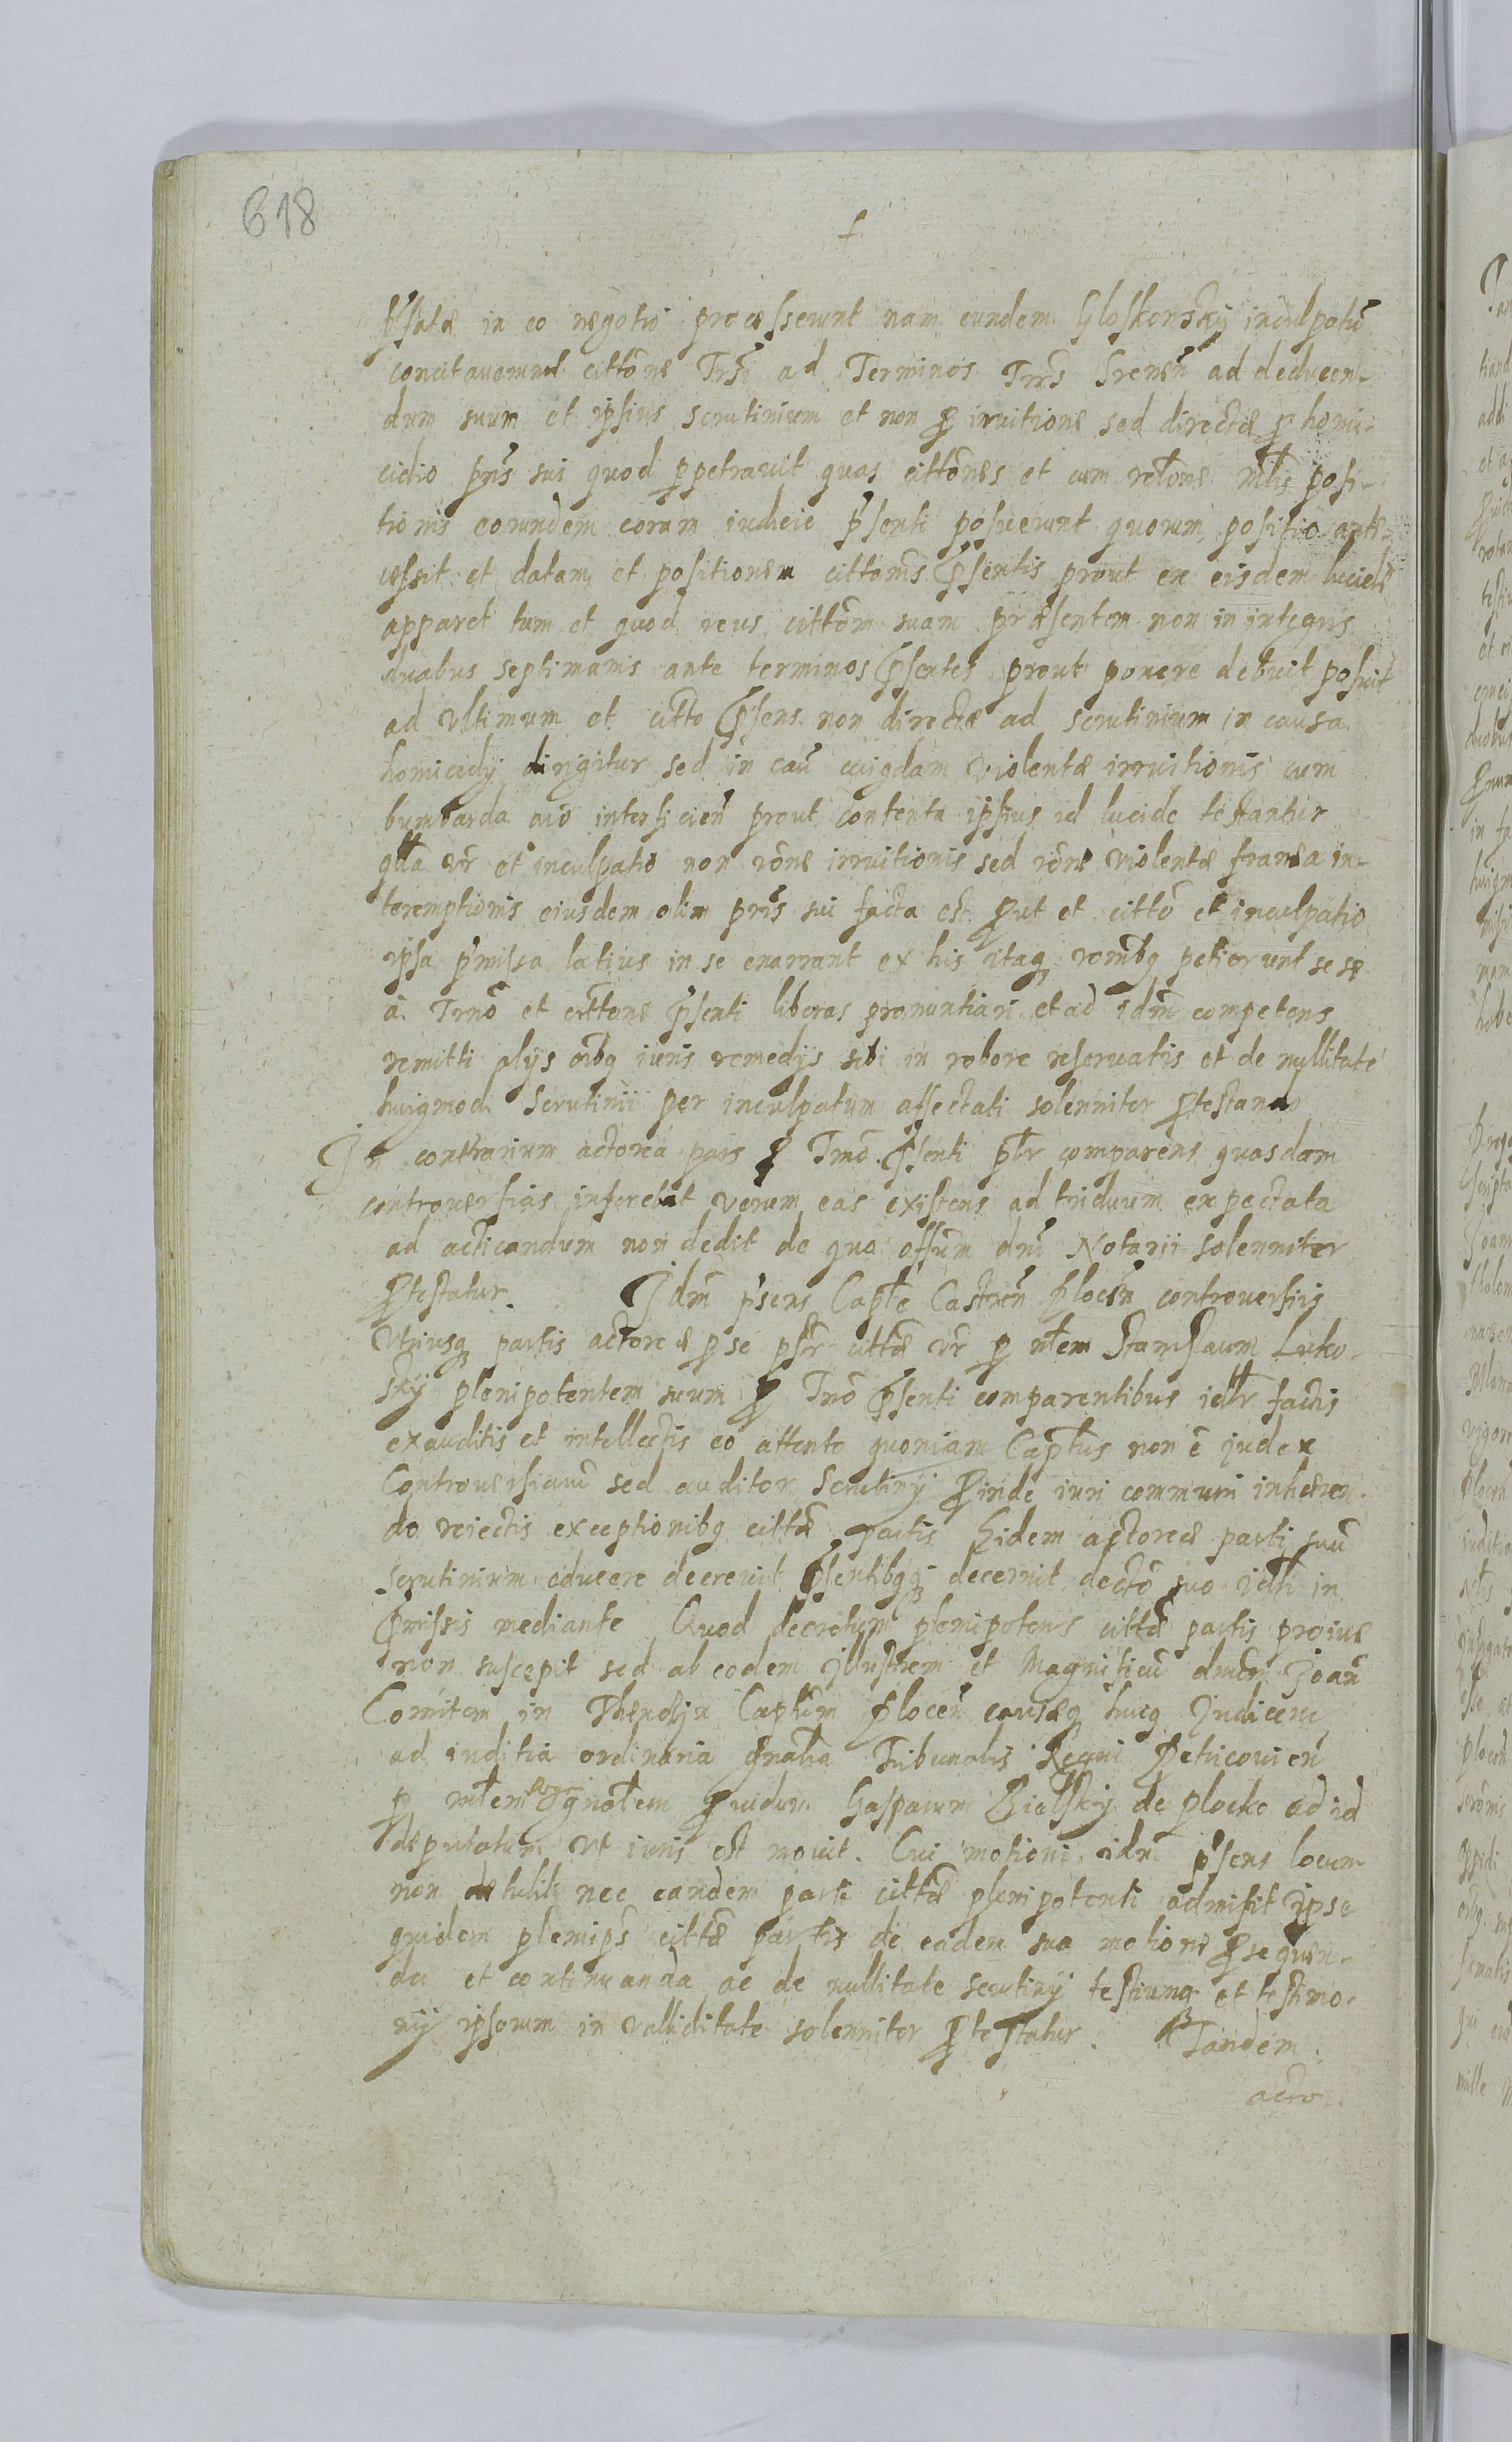 618
p̄ſatæ in eo negotio processerunt nam eundem Gloſkowsky inculpatū
concitaverunt cittōne Trſi ad Terminos Trrs Srenēn ad deducen-
dum suum et ipſius scrutinium et non ꝓ irruitione sed directæ ꝓ homi-
cidio pr̄is sui quod ꝑpetravit quas cittōnes et cum relōne Mlis poſi-
tionis eorundem coram iudicio p̄ſenti poſuerunt quorum poſitio ante-
ceſsit et datam et poſitionem cittōnis p̄ſentis prout ex eisdem lucide
apparet tum et quod reus cittōm suam præſentem non in integris
duabus septimanis ante terminos p̄ſentes prout ponere debuit poſuit
ad Vltimum et citto p̄ſens non directæ ad scrutinium in causa
homicidÿ dirigitur sed in caū cuiqdam violentæ irruitionis cum
bumbarda aīo interficien̄ prout contenta ipſius id lucide testantur
qlla vr̄ et inculpatio non rōne irruitionis sed rōne violentæ framea in-
teremptionis eiusdem olim pr̄is sui facta est ꝓut et cittō et inculpatio
ipsa p̄miſsa latius in se enarrant ex his itaq rōnibq petierunt se se
à Trnō et cittōne p̄ſenti liberas pronuntiari et ad Idm̄ competens
remitti alÿs oībq iuris remedÿs sibi in robore reſervatis et de nullitate
huiqmodi Scrutinii per inculpatum affectati solenniter ꝓtestando
In contrarium actorea pars ꝓ Tmō p̄ſenti plr̄ comparens quasdam
controverſias inferebat verum eas existens ad triduum expectata
ad acticandum non dedit de quo offūm dn̄i Notarii solenniter
ꝓteſtatur. Idm̄ p̄sens Caplē Castren̄ Plocēn controverſiis
Vtriusq partis actoreæ ꝑ se pſlr̄ cittæ vr̄ ꝑ nlem Staniſlaum Luko-
ſky plenipotentem suum ꝓ Tnō p̄ſenti comparentibus idlr̄ factis
exauditis et intellectis eo attento quoniam Capl̄us non ē judex
Controverſiarū sed auditor Scrutinÿ ꝓinde iuri communi inhæren-
do reiectis exceptionibq cittæ partis Eidem actoreæ parti suū
scrutinium educere decrevit p̄ſentibqq decernit dectō suo idlr̄ in
p̄miſsis mediante Quod decretum plenipotens cittæ partis proiue
non suſcepit sed ab eodem Illuſtrem et Magnificū dnūm Joan̄
Comitem in Thenczjn Caplūm Plocēn causæq huiq Judicem
ad iuditia ordinaria gn̄alia Tribunalis Regni Petricovien̄
ꝑ nlem gn̄olem ꝓvidum Gasparum Bielſky de Plocko ad id
deputatum vt iuris est movit. Cui motioni idm̄ p̄ſens locum
non detulit nec eandem parti cittæ plenipotenti admiſit ipse
quidem plenip̄s cittæ partis de eadem sua motione ꝓsequen-
da et continuanda ac de nullitate scrutinÿ teſtiumq et teſtimo-
nÿ ipſorum in valliditate solenniter ꝓteſtatur. Tandem
acto